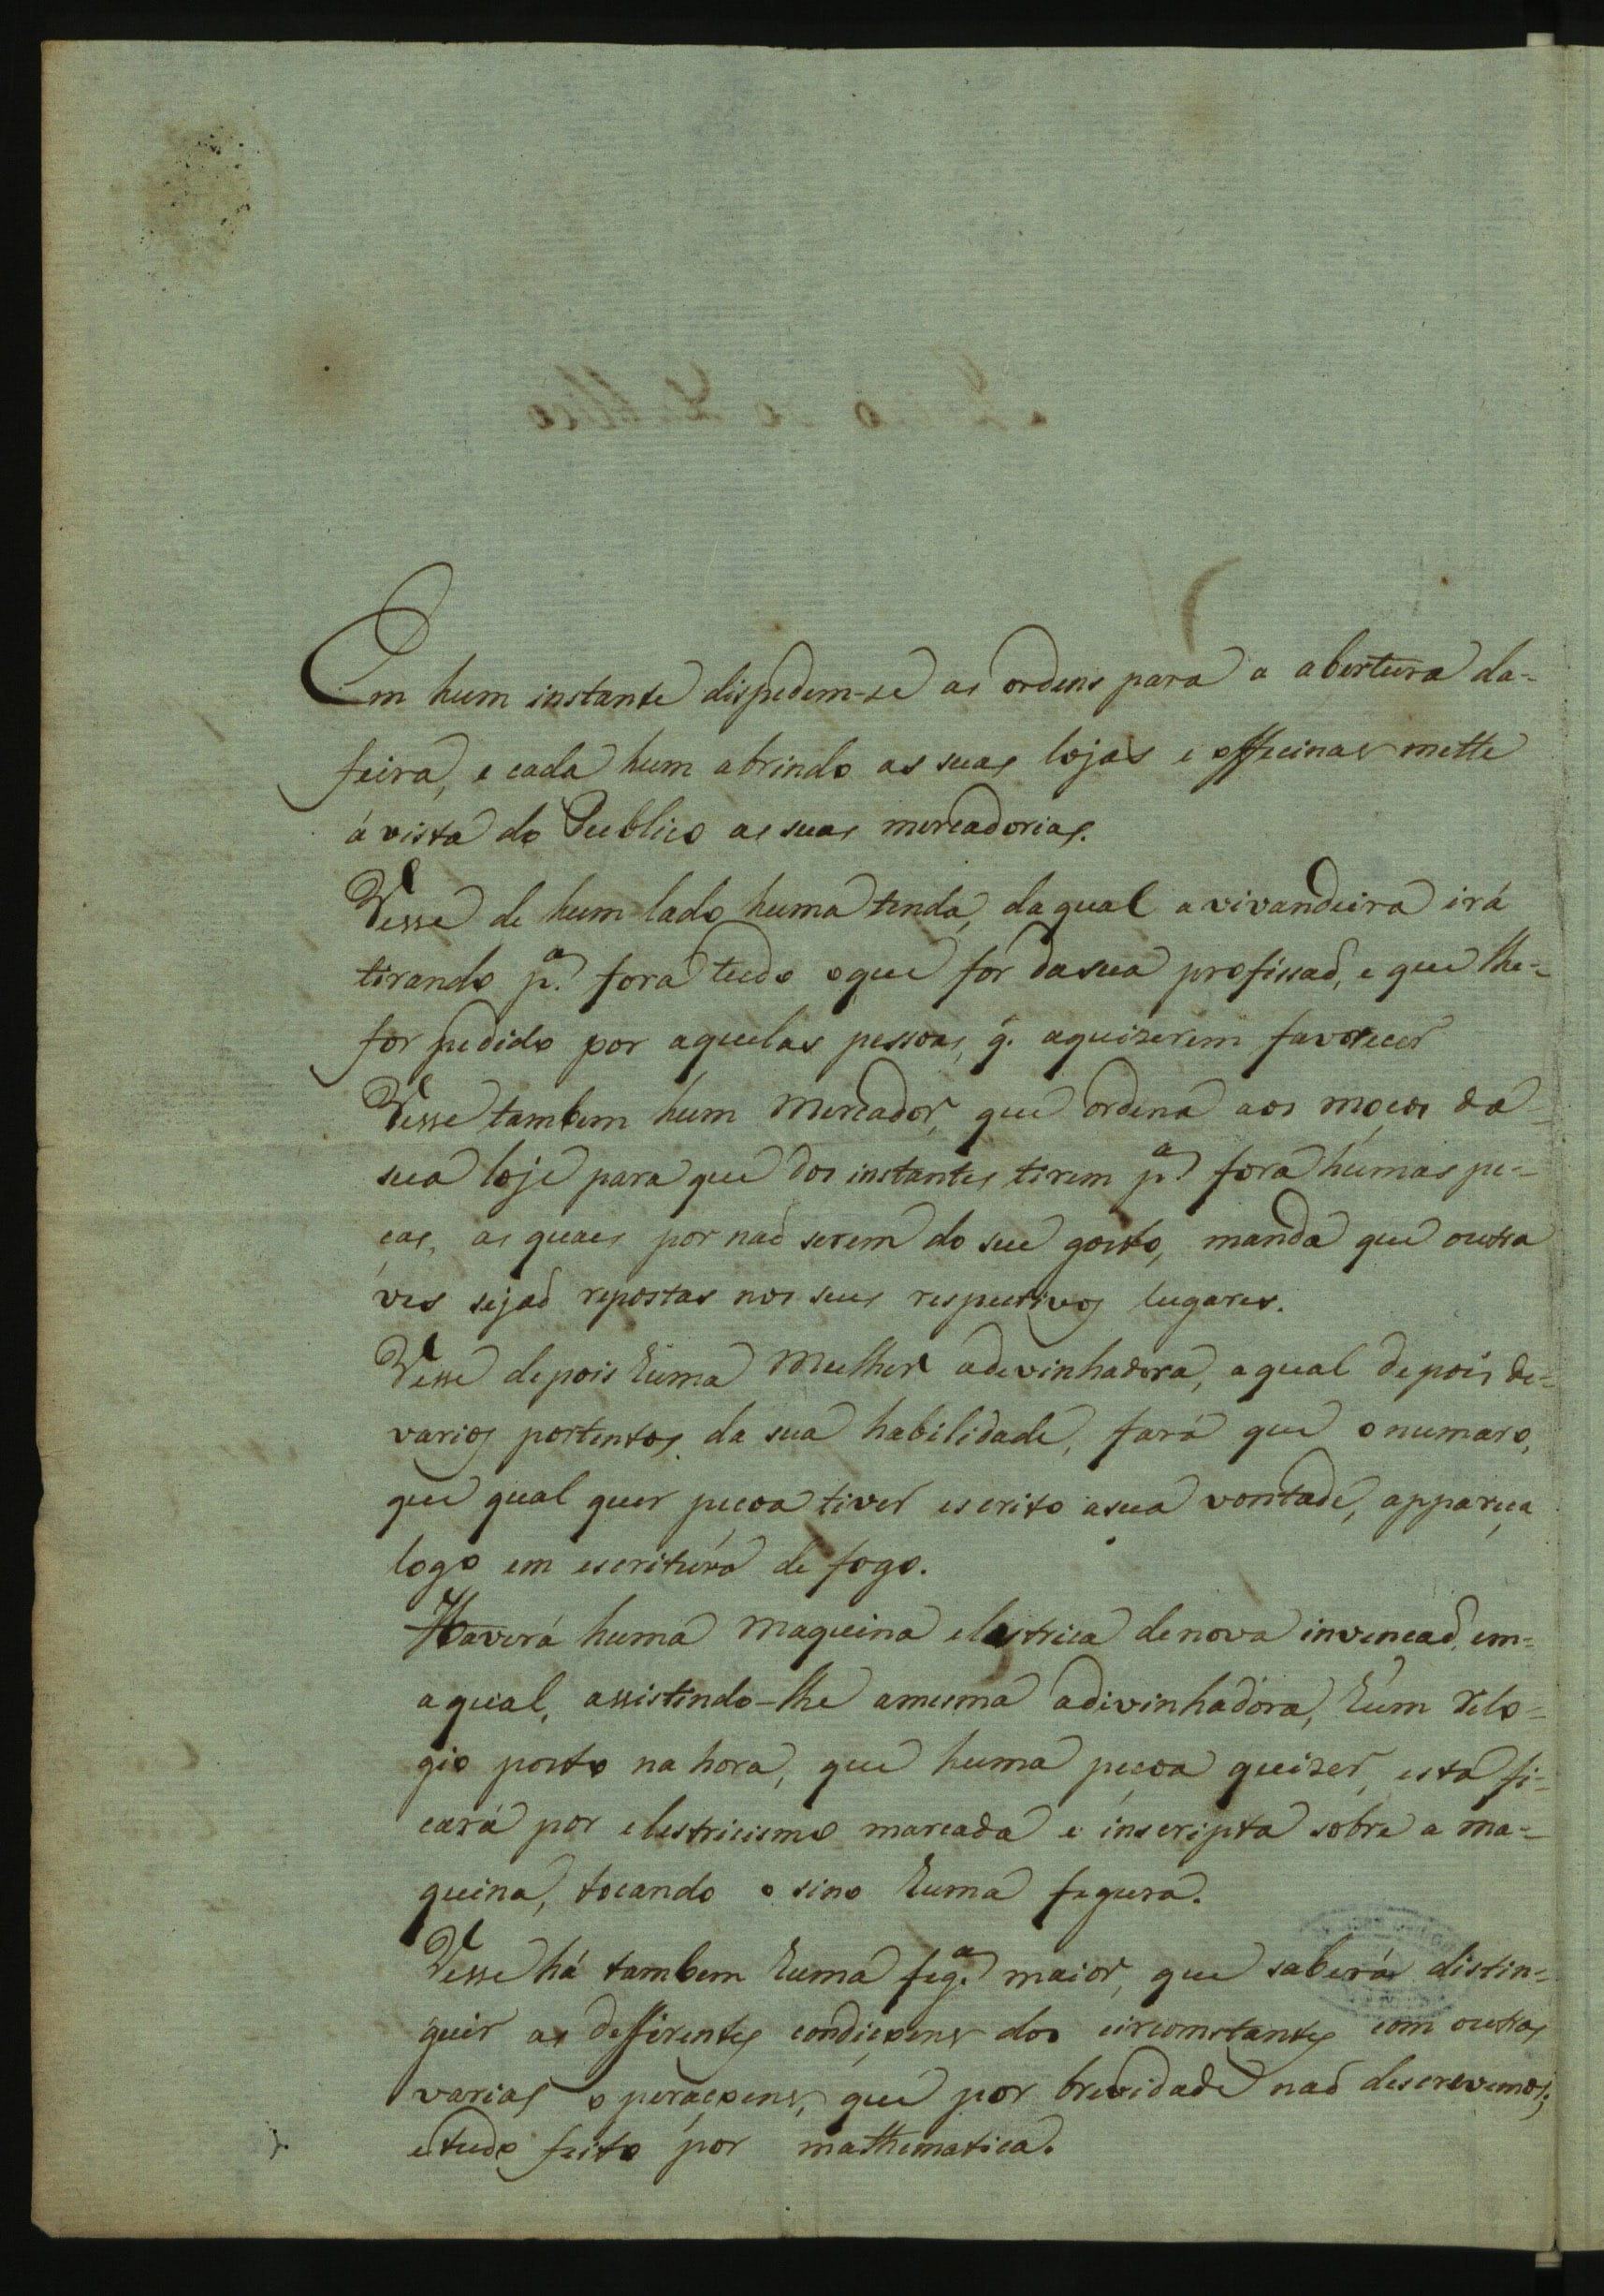 Em hum instante dispedem-se as ordens para a abertura da-
feira, e cada hum abrindo as suas lojas e officinas mette
á vista do Publico as suas mercadorias.
Vesse de hum lado huma tenda, da qual a vivandeira irá
tirando p.ª fora tudo o que fór da sua profissaõ, e que lhe-
for pedido por aquelas pessoas, q̃. a quizerem favorecer
Vesse tambem hum Mercador, que ordena aos moços da
sua loje para que dos instantes tirem p.ª fora húmas pe-
ças, as quaes por naõ serem do seu gosto, manda que outra
ves sejaõ repostas nos seus respectivos lugares.
Vesse depois huma Mulher adevinhadora, a qual depois de-
varios portentos da sua habilidade, fará que o numaro,
que qual quer peçoa tiver escrito a sua vontade, appareça
logo em escritura de fogo.
Haverá huma Maquina elestrica de nova invencaõ, em-
a qual, assistindo-lhe a mesma adivinhadora, hum relo-
gio posto na hora, que huma peçoa quizer, esta fi-
cará por elestricismo marcada e inscripta sobre a ma-
quina, tocando o sino huma figura.
Vesse há tambem huma fig.ª maior, que saberá distin-
guir as defferentes condiçoens dos circomstantes com outras
varias operaçoens, que por brevidade naõ descrevemos;
e tudo feito por mathematica.